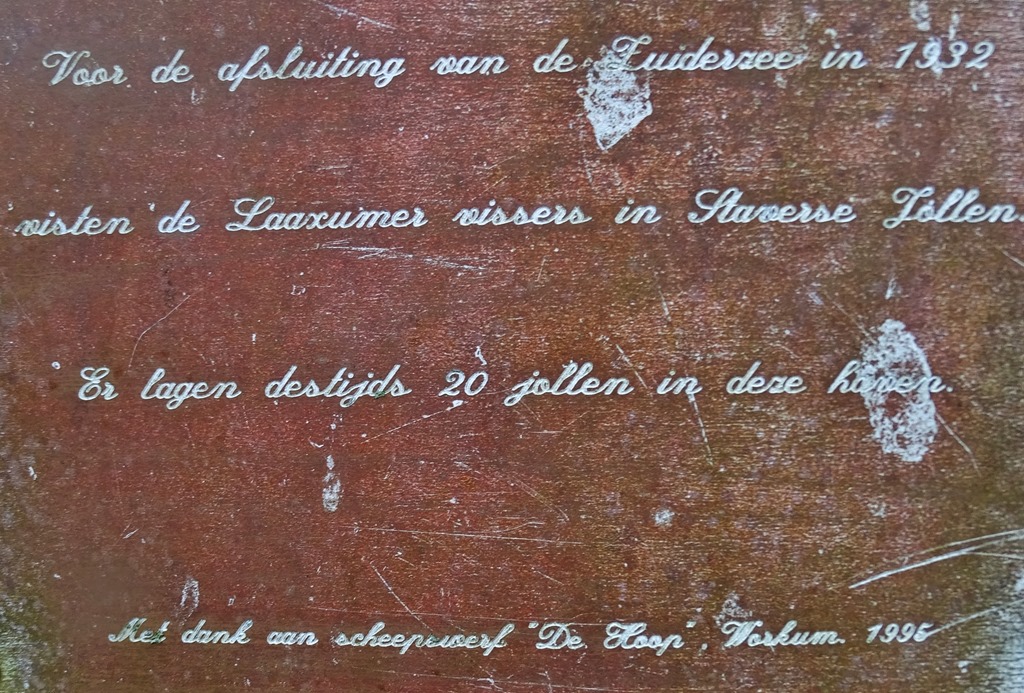 Voor de afsluiting van de Zuiderzee in 1932
visten de Laaxumer vissers in Staverse Jollen.
Er lagen destijds 20 jollen in deze haven.
Met dank aan scheepswerf "De Hoop", Workum. 1995